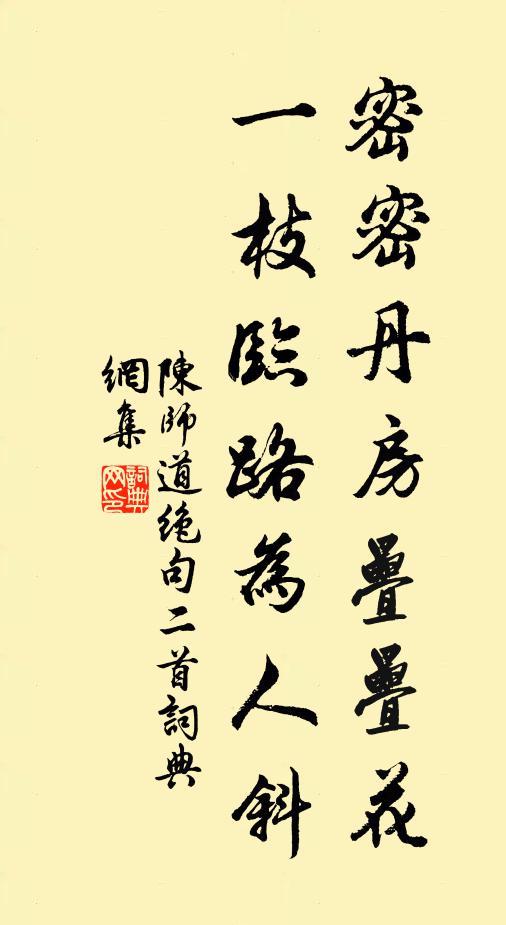 密密丹房疊疊花
一枝臨路為人斜
陳師道絶句二首詞典
網集
詞典
网印